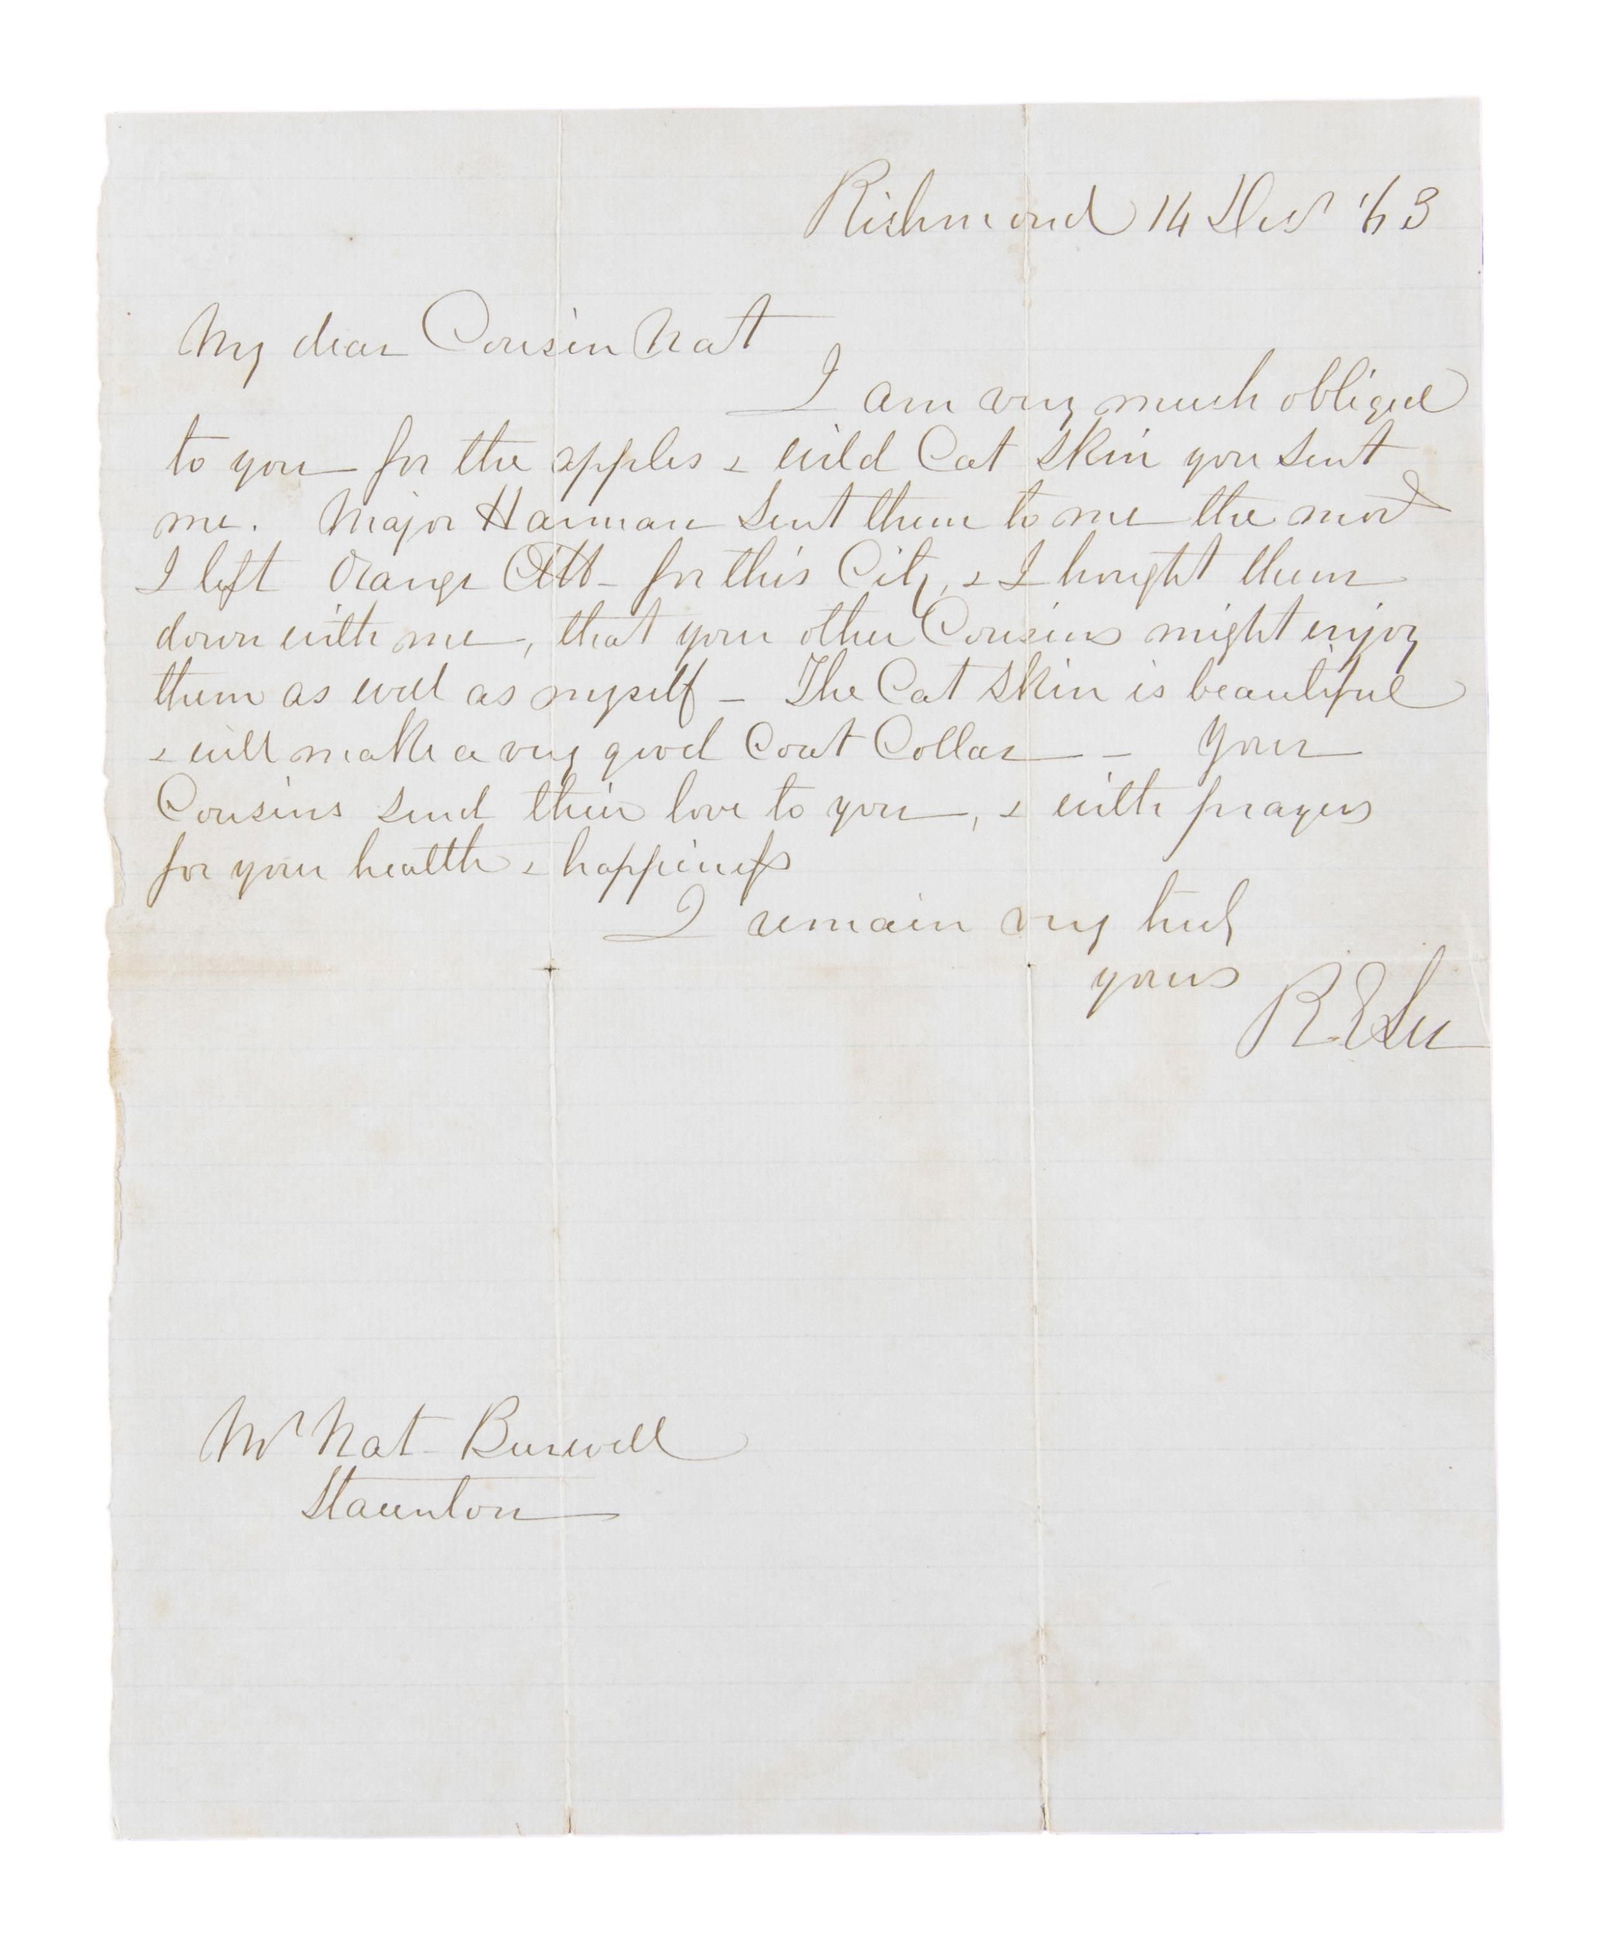 Richmond 14 Decr '63
My dear Cousin Nat
I am very much obliged
to you for the apples & wild Cat skin you sent
me. Major Harman sent them to me the mort
I left Orange CtH - for this City, & I brought them
down with me, that your other Cousins might enjoy
them as well as myself - The Cat skin is beautiful
& will make a very good Coat Collar - Your
Cousins send their love to you, & with prayers
for your health & happiness
I remain very truly
yours
R. E Lee
Mr Nat Burwell
Staunton